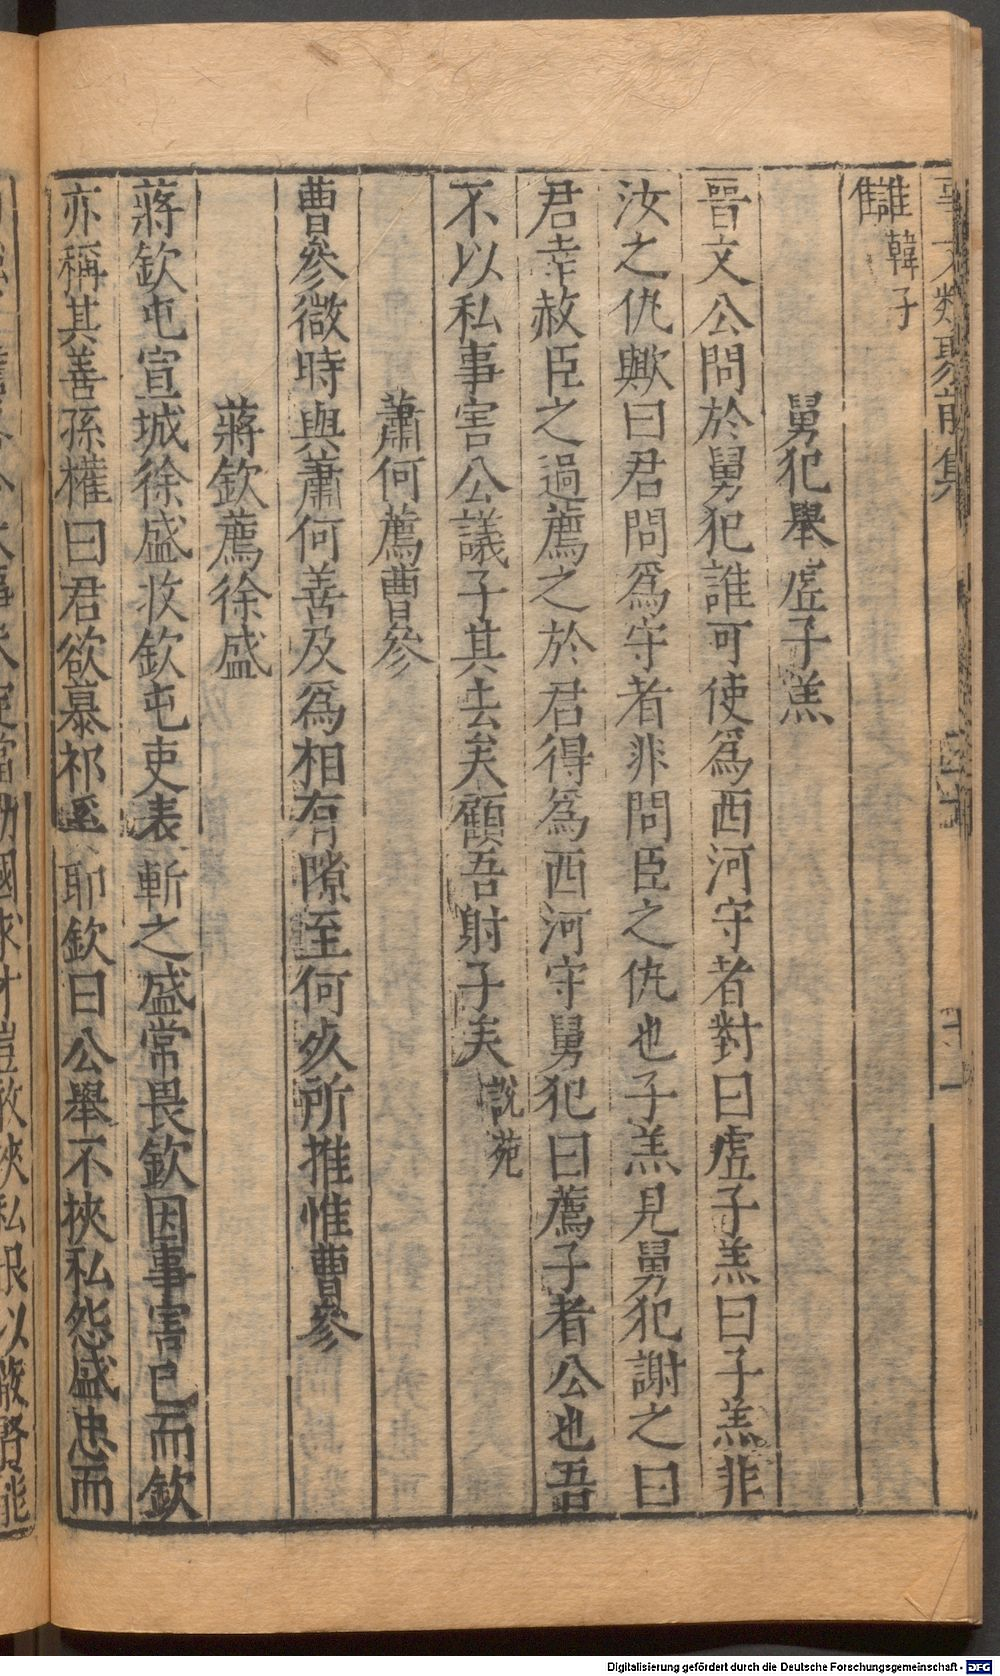 事文類聚前集
讎韓子
舅犯舉虗子羔
晉文公問於舅犯誰可使爲西河守者對曰虗子羔曰子羔非
汝之仇歟曰君問爲守者非問臣之仇也子羔見舅犯謝之曰
君幸赦臣之過薦之於君得爲西河守舅犯曰薦子者公也吾
不以私事害公議子其去矣顧吾射子矣 說苑
蕭何薦曹參
曹參微時與蕭何善及爲相有隙至何歿所推惟曹參
蔣欽薦徐盛
蔣欽屯宣城徐盛收欽屯吏表斬之盛常畏欽因事害已而欽
亦稱其善孫權曰君欲慕祁奚耶欽曰公舉不挾私怨盛忠而
Digitalisierung gefördert durch die Deutsche Forschungsgemeinschaft - DFG